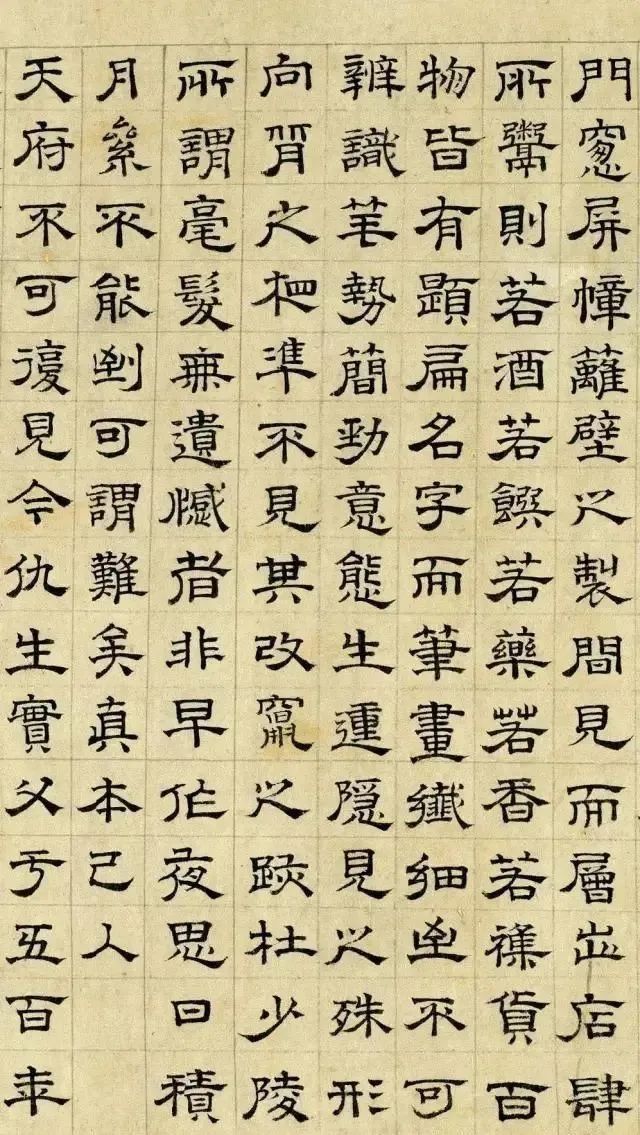 門窻屏幛籬壁之製間見而層出店肆
所鬻則若酒若饌若藥若香若雜貨百
物皆有題扁名字而筆畫纖細至不可
辨識笔勢簡勁意態生運隱見之殊形
向背之相準不見其改竄之跡杜少陵
所謂毫髮無遺憾者非早作夜思日積
月絫不能到可謂難矣真本已入
天府不可復見今仇生實父亏五百年